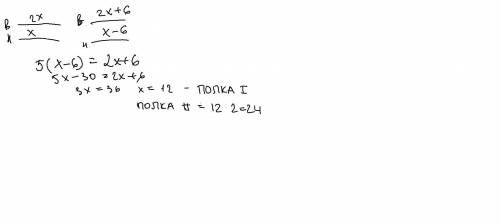 в 2x в 2x+6
н x н x-6
5(x-6) = 2x+6
5x-30 = 2x+6
3x = 36 x = 12 - ПОЛКА I
ПОЛКА II = 12·2=24